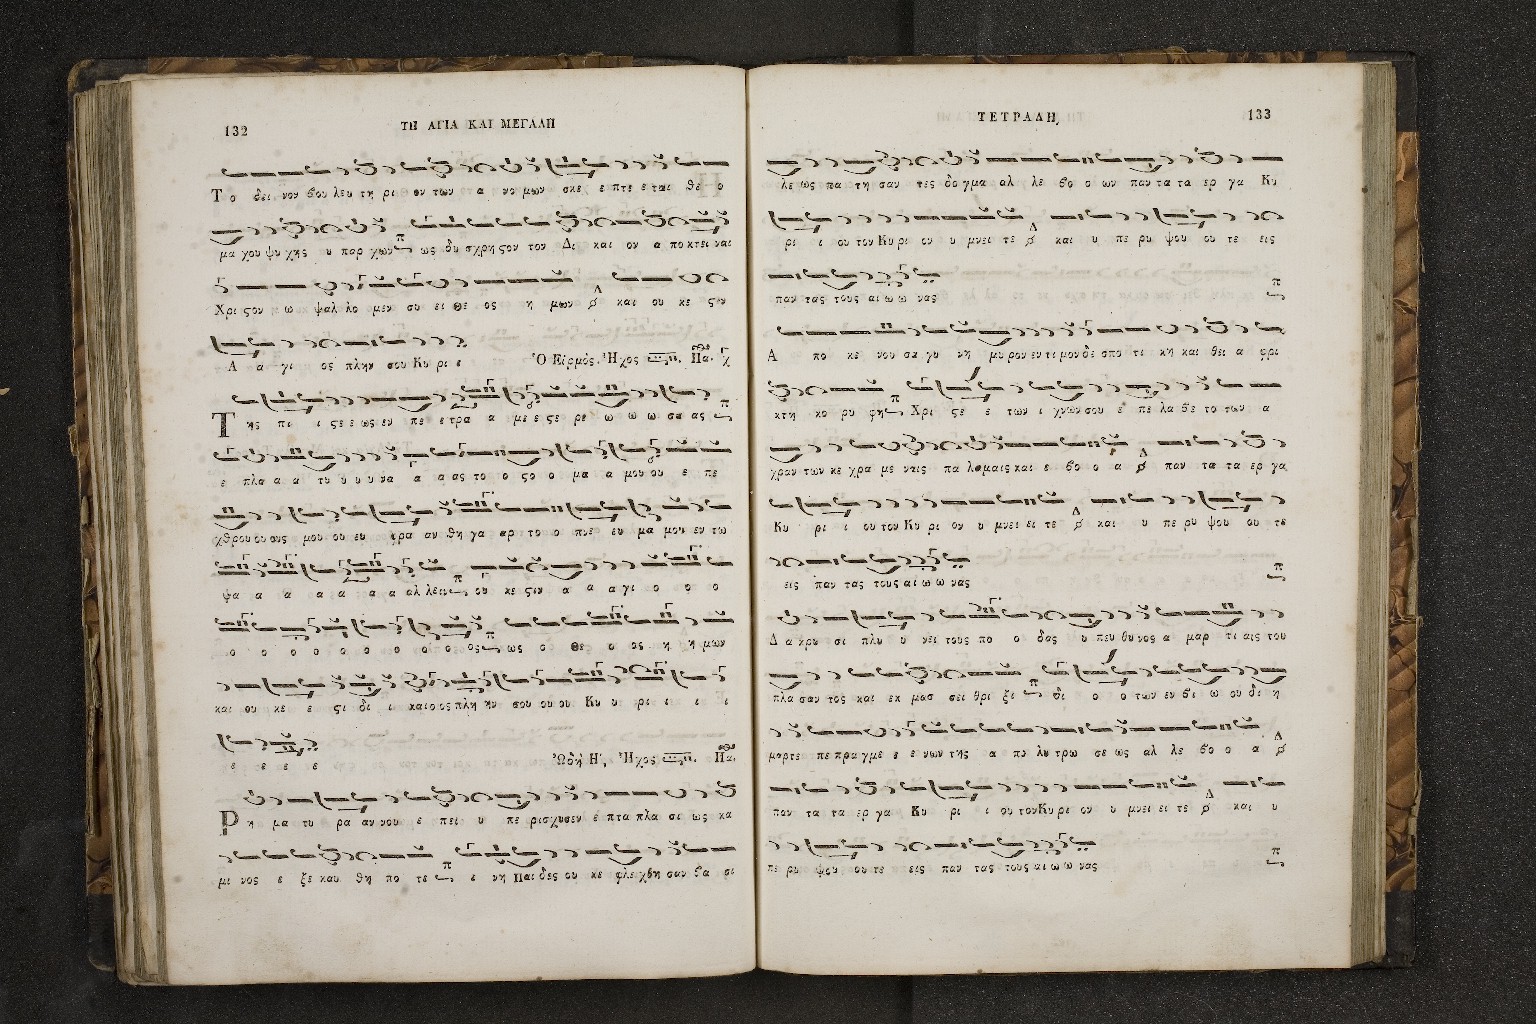 132
ΤΗ ΑΓΙΑ ΚΑΙ ΜΕΓΑΛΗ
Τ ο δει νον βου λευ τη ρι ον των α νο μων σκε ε πτε ε ται θε ο
μα χου ψυ χης υ παρ χων ως δυ σχρη ϛον τον Δι και ον α πο κτει ναι
Χρι ϛον ω ψαλ λο μεν συ ει Θε ος η μων και ου κε ϛιν
Α α γι ος πλην σου Κυ ρι ε Ὁ Εἱρμός. Ἦχος Πα.
Τ ης πι ι ϛε ε ως εν πε ε τρα α με ε ϛε ρε ω ω ω σα ας
ε πλα α α τυ υ υ υ να α α ας το ο ϛο ο μα α μου ου ε πε
χθρου ου ους μου ου ευ φρα αν θη γα αρ το ο πνε ευ μα μου εν τω
ψα α α α α α α αλ λειν ου κε ϛιν α α α γι ο ο ο
ο ο ο ο ο ο ο ο ο ος ως ο Θε ο ος η η μων
και ου κε ε ϛι δι ι και ο ος πλη ην σου ου ου Κυ υ ρι ι ι ι
ε ε ε ε Ὠδὴ Η, Ἦχος Πα.
Ρ η μα τυ ρα αν νου ε πει υ πε ρισχυσεν ε πτα πλα σι ως κα
μι νος ε ξε καυ θη πο τε ε νη Παι δες ου κε φλε χθη σαν βα σι
ΤΕΤΡΑΔΗ,
133
λε ως πα τη σαν τες δο γμα αλ λε βο ο ων παν τα τα ερ γα Κυ
ρι ι ου τον Κυ ρι ον υ μνει τε και υ πε ρυ ψου ου τε εις
παν τας τους αι ω ω νας
Α πο κε νου σα γυ νη μυ ρον εν τι μον δε σπο τι κη και θει α φρι
κτη κο ρυ φη Χρι ϛε ε των ι χνων σου ε πε λα βε το των α
χραν των κε χρα με ναις πα λαμαις και ε βο ο α παν τα τα ερ γα
Κυ ρι ι ου τον Κυ ρι ον υ μνει ει τε και υ πε ρυ ψου ου τε
εις παν τας τους αι ω ω νας
Δ α κρυ σι πλυ υ νει τους πο ο δας υ πευ θυ νος α μαρ τι αις του
πλα σαν τος και εκ μασ σει θρι ξι δι ο ο των εν βι ω ου δι η
μαρτε πε πρα γμε ε ε νων της α πο λυ τρω σε ως αλ λε βο ο α
παν τα τα ερ γα Κυ ρι ι ου τον Κυ ρι ον υ μνει ει τε και υ
πε ρυ ψου ου τε εις παν τας τους αι ω ω νας